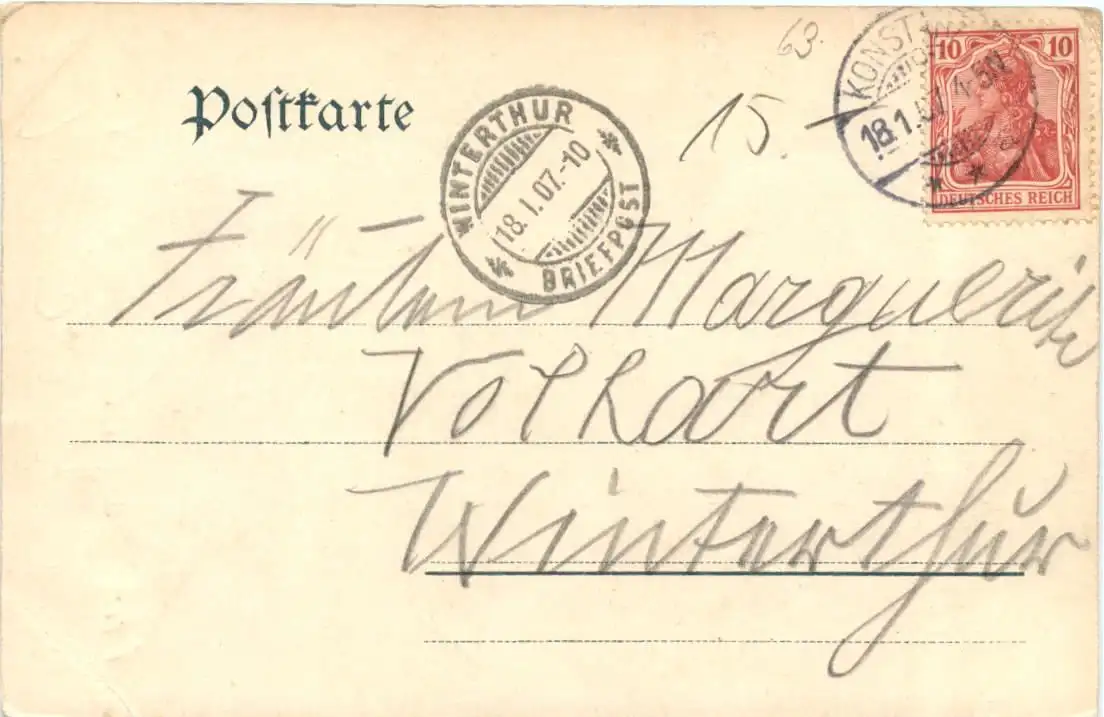 63.
Postkarte
15.
WINTERTHUR
18.I.07.-10
BRIEFPOST
KONST
18.1.07 4-5N
10 10
DEUTSCHES REICH
Fräulein Marguerite
Volkart
Winterthur